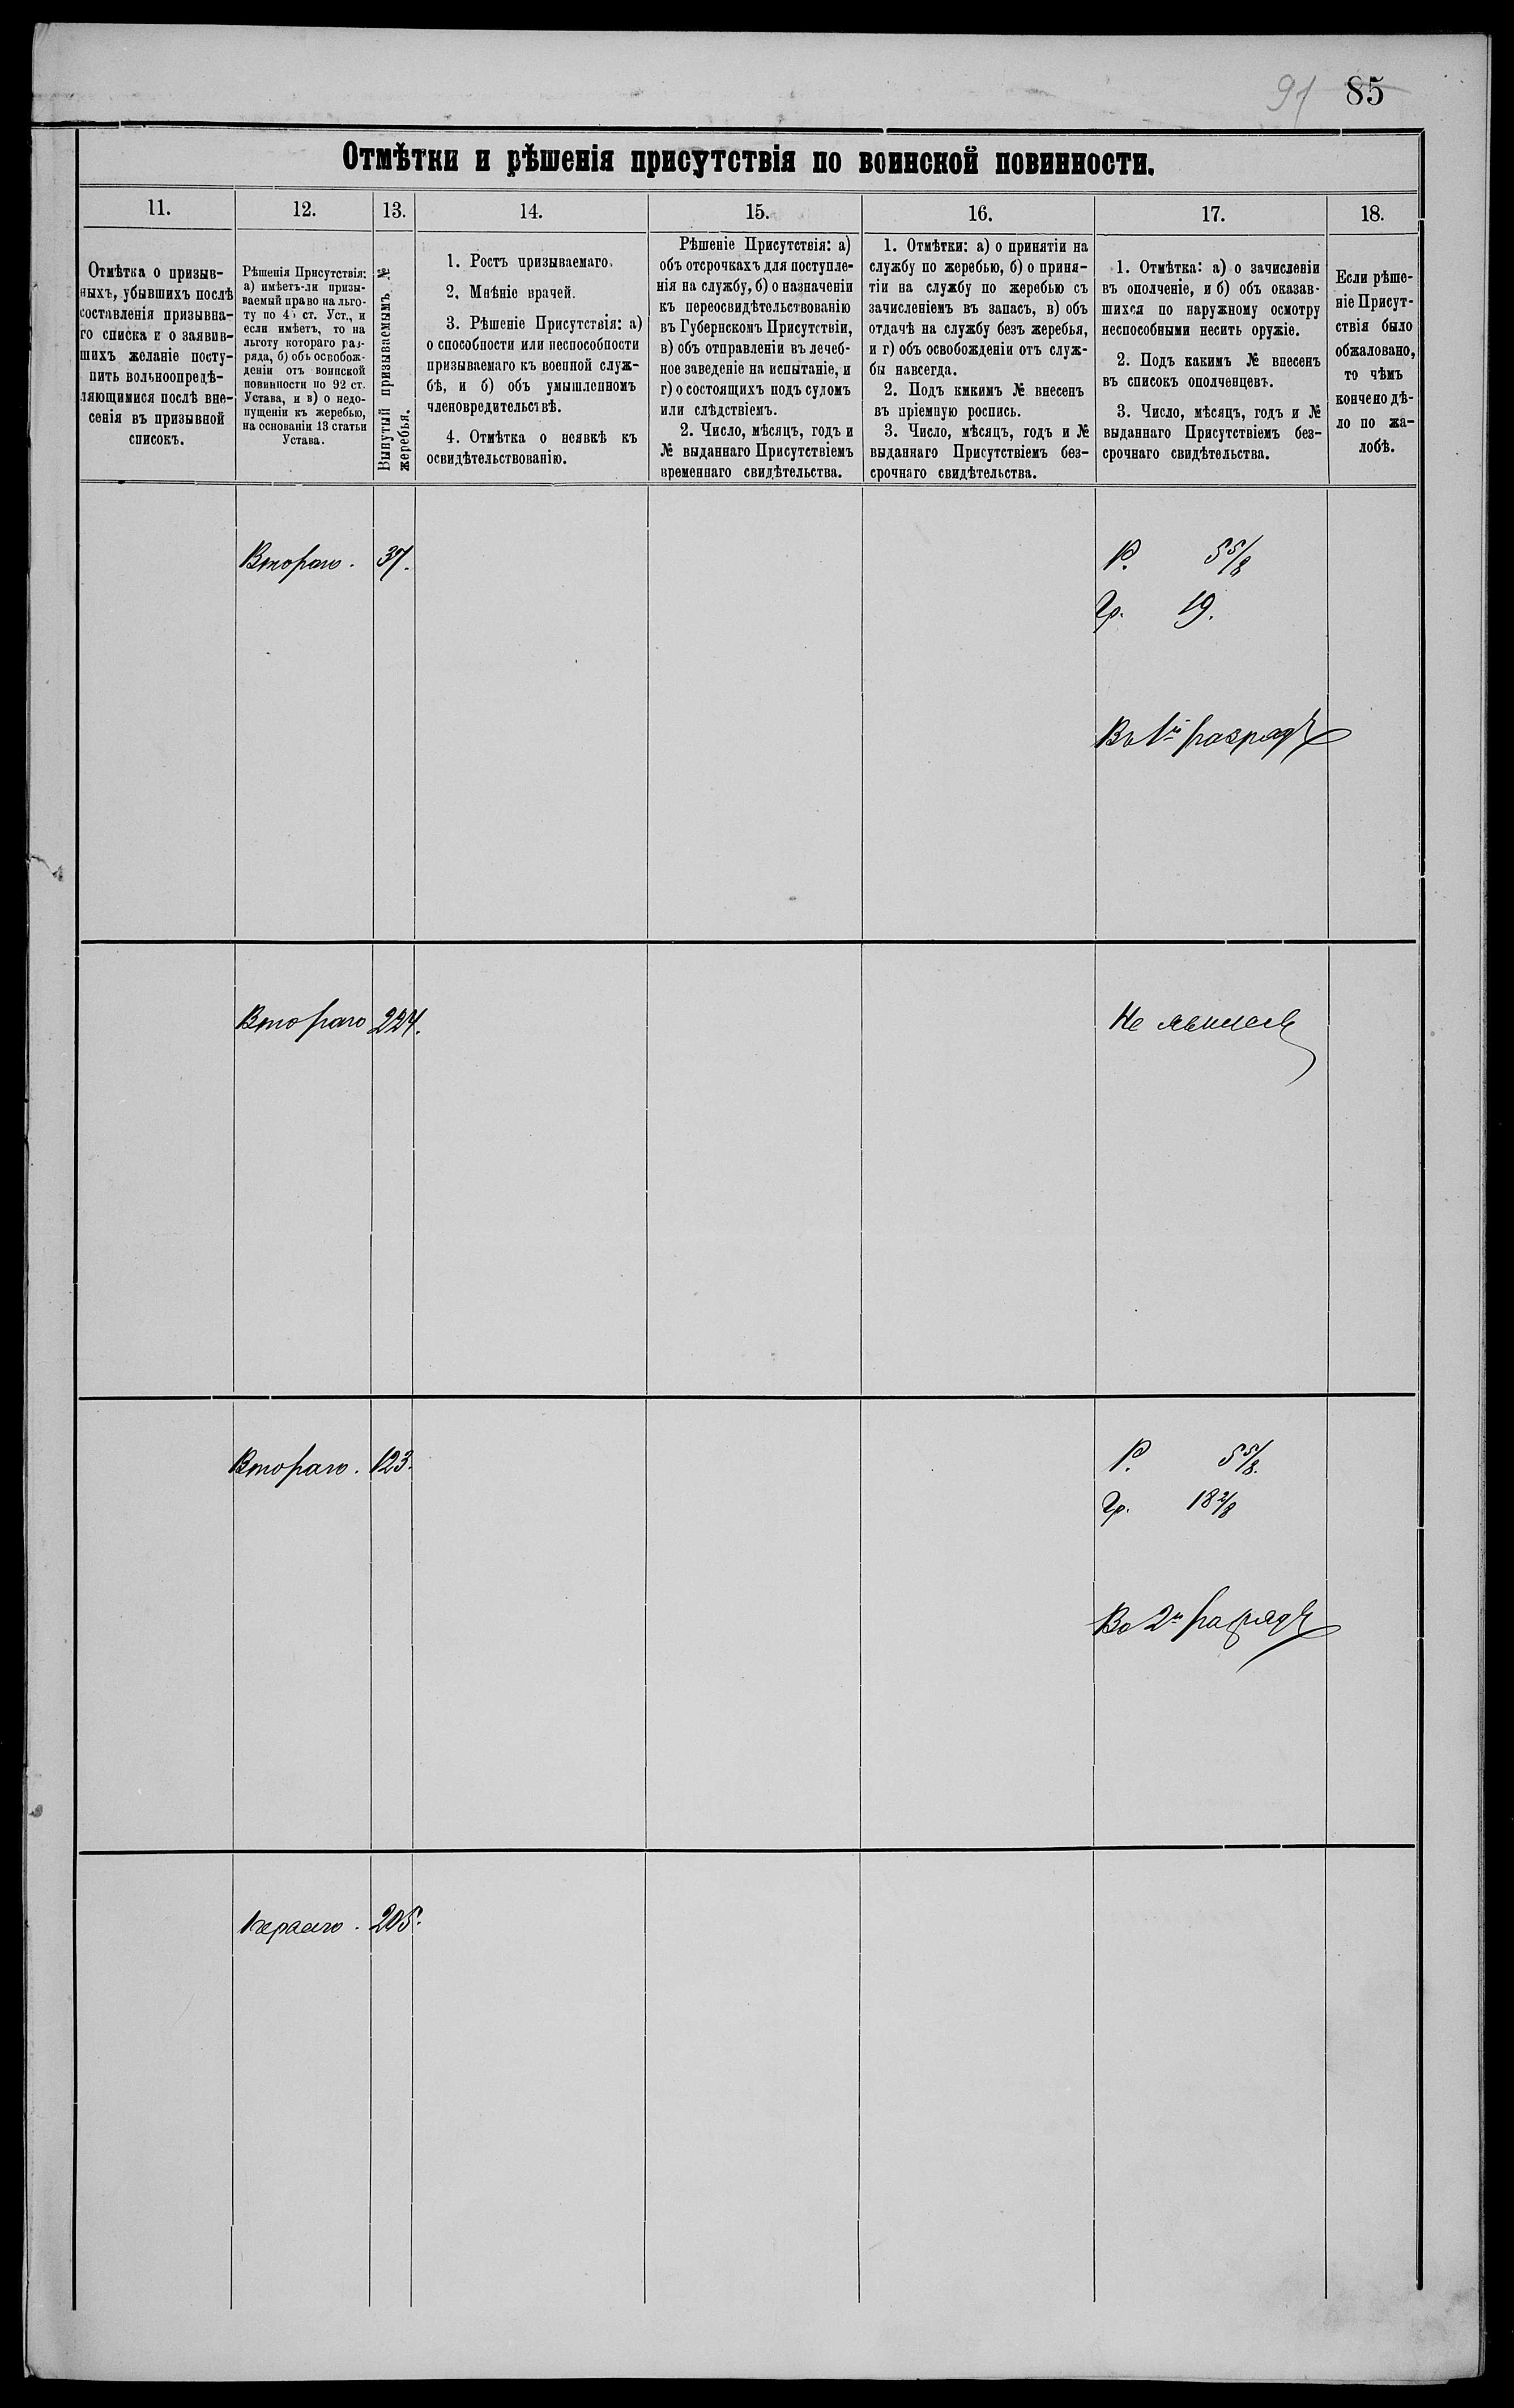 91 85
Отмѣтки и рѣшенія присутствія по воинской повинности.
11.
Отмѣтка о призыв-
ныхъ, убывшихъ послѣ
составленія призывна-
го списка и о заявив-
шихъ желаніе посту-
пить вольноопредѣ-
ляющимися послѣ вне-
сенія въ призывной
списокъ.
12.
Рѣшенія Присутствія:
а) имѣетъ-ли призы-
ваемый право на льго-
ту по 45 ст. Уст., и
если имѣетъ, то на
льготу котораго раз-
ряда, б) объ освобож-
деніи отъ воинской
повинности по 92 ст.
Устава, и в) о недо-
пущеніи къ жеребью,
на основаніи 13 статьи
Устава.
13.
Вынутый призываемымъ №
жеребья.
14.
1. Ростъ призываемаго.
2. Мнѣніе врачей.
3. Рѣшеніе Присутствія: а)
о способности или неспособности
призываемаго къ военной служ-
бѣ, и б) объ умышленномъ
членовредительствѣ.
4. Отмѣтка о неявкѣ къ
освидѣтельствованію.
15.
Рѣшеніе Присутствія: а)
объ отсрочкахъ для поступле-
нія на службу, б) о назначеніи
къ переосвидѣтельствованію
въ Губернскомъ Присутствіи,
в) объ отправленіи въ лечеб-
ное заведеніе на испытаніе, и
г) о состоящихъ подъ судомъ
или слѣдствіемъ.
2. Число, мѣсяцъ, годъ и
№ выданнаго Присутствіемъ
временнаго свидѣтельства.
16.
1. Отмѣтки: а) о принятіи на
службу по жеребью, б) о приня-
тіи на службу по жеребью съ
зачисленіемъ въ запасъ, в) объ
отдачѣ на службу безъ жеребья,
и г) объ освобожденіи отъ служ-
бы навсегда.
2. Подъ кмкимъ № внесенъ
въ пріемную роспись.
3. Число, мѣсяцъ, годъ и №
выданнаго Присутствіемъ без-
срочнаго свидѣтельства.
17.
1. Отмѣтка: а) о зачисленіи
въ ополченіе, и б) объ оказав-
шихся по наружному осмотру
неспособными несить оружіе.
2. Подъ какимъ № внесенъ
въ списокъ ополченцевъ.
3. Число, мѣсяцъ, годъ и №
выданнаго Присутствіемъ без-
срочнаго свидѣтельства.
18.
Если рѣше-
ніе Присут-
ствія было
обжаловано,
то чѣмъ
кончено дѣ-
ло по жа-
лобѣ.
Втораго. 37. Р. 5 5/8
Гр. 19.
Въ 1й разрядъ
Втораго 224. Не явился
Втораго. 123. Р. 5 5/8.
Гр. 18 2/8
Во 2й разрядъ
Перваго. 205.